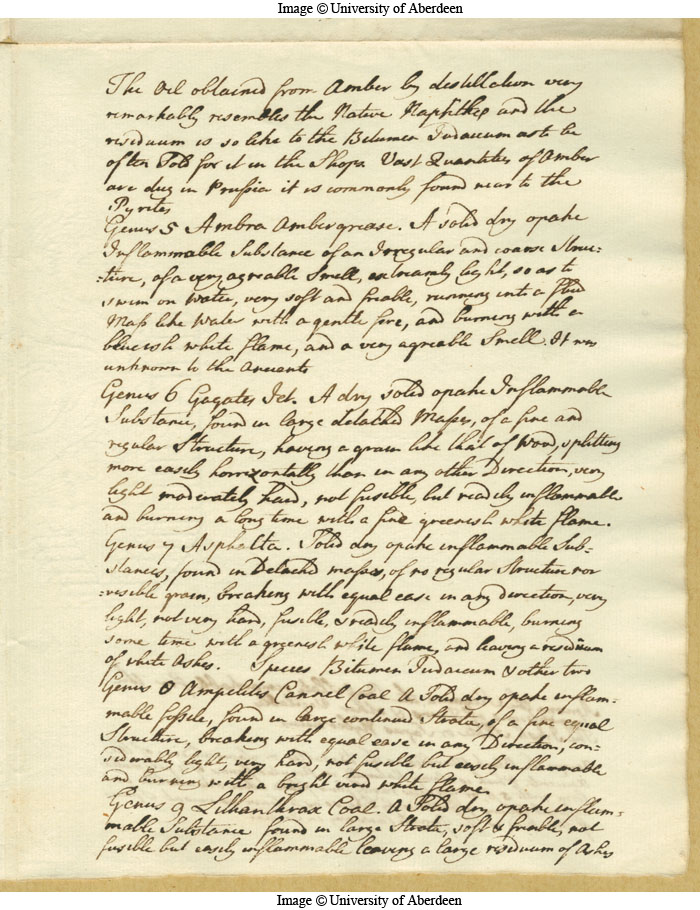 Image © University of Aberdeen
The Oil obtained from Amber by destillation very
remarkably resembles the Native Naphtha and the
residuum is so like to the Bitumen Judaicum as to be
often Sold for it in the Shops Vast Quantities of Amber
are dug in Prussia it is commonly found near to the
Pyrites
Genus 5 Ambra Ambergrease. A solid dry opake
Inflammable Substance of an Irregular and coarse Struc=
=ture, of a very agreable Smell, extreamly light, so as to
swim on water, very soft and freable, running into a fluid
Mass like Water with a gentle fire, and burning with a
blueish white flame, and a very agreable Smell. It was
unknown to the Ancients
Genus 6 Gagates Jet. A dry solid opake Inflammable
Substance, found in large detached Masses, of a fine and
regular Structure, having a grain like that of Wood, splitting
more easily horrizontally than in any other Direction, very
light moderately hard, not fusible, but readily inflammable
and burning a long time with a fine greenish white flame.
Genus 7 Asphalta. Solid dry opake inflammable Sub-
stances, found in Detached masses, of no regular Structure nor
=visible grain, breaking with equal ease in any direction, very
light, not very hard, fusible, & readily inflammable, burning
some time with a greenish white flame, and leaving a residuum
of white Ashes. Species Bitumen Judaicum & other two
Genus 8 Ampelites Cannel Coal A Solid dry opake inflam=
mable fossile, found in large continued Strata, of a fine equal
Structure, breaking with equal ease in any Direction, con=
siderably light, very hard, not fusible but easily inflammable
and burning with a bright vivid white flame.
Genus 9 Lithanthrax Coal. A Solid dry opake inflam=
mable Substance found in large Strata, soft & friable, not
fusible but easily inflammable leaving a large residuum of Ashes
Image © University of Aberdeen